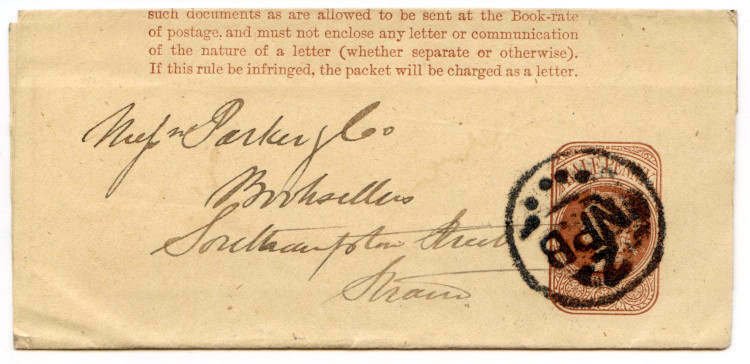 such documents as are allowed to be sent at the Book-rate
of postage, and must not enclose any letter or communication
of the nature of a letter (whether separate or otherwise).
If this rule be infringed, the packet will be charged as a letter.
Messrs Parker & Co
Booksellers
Southampton Street
Strand
NPB